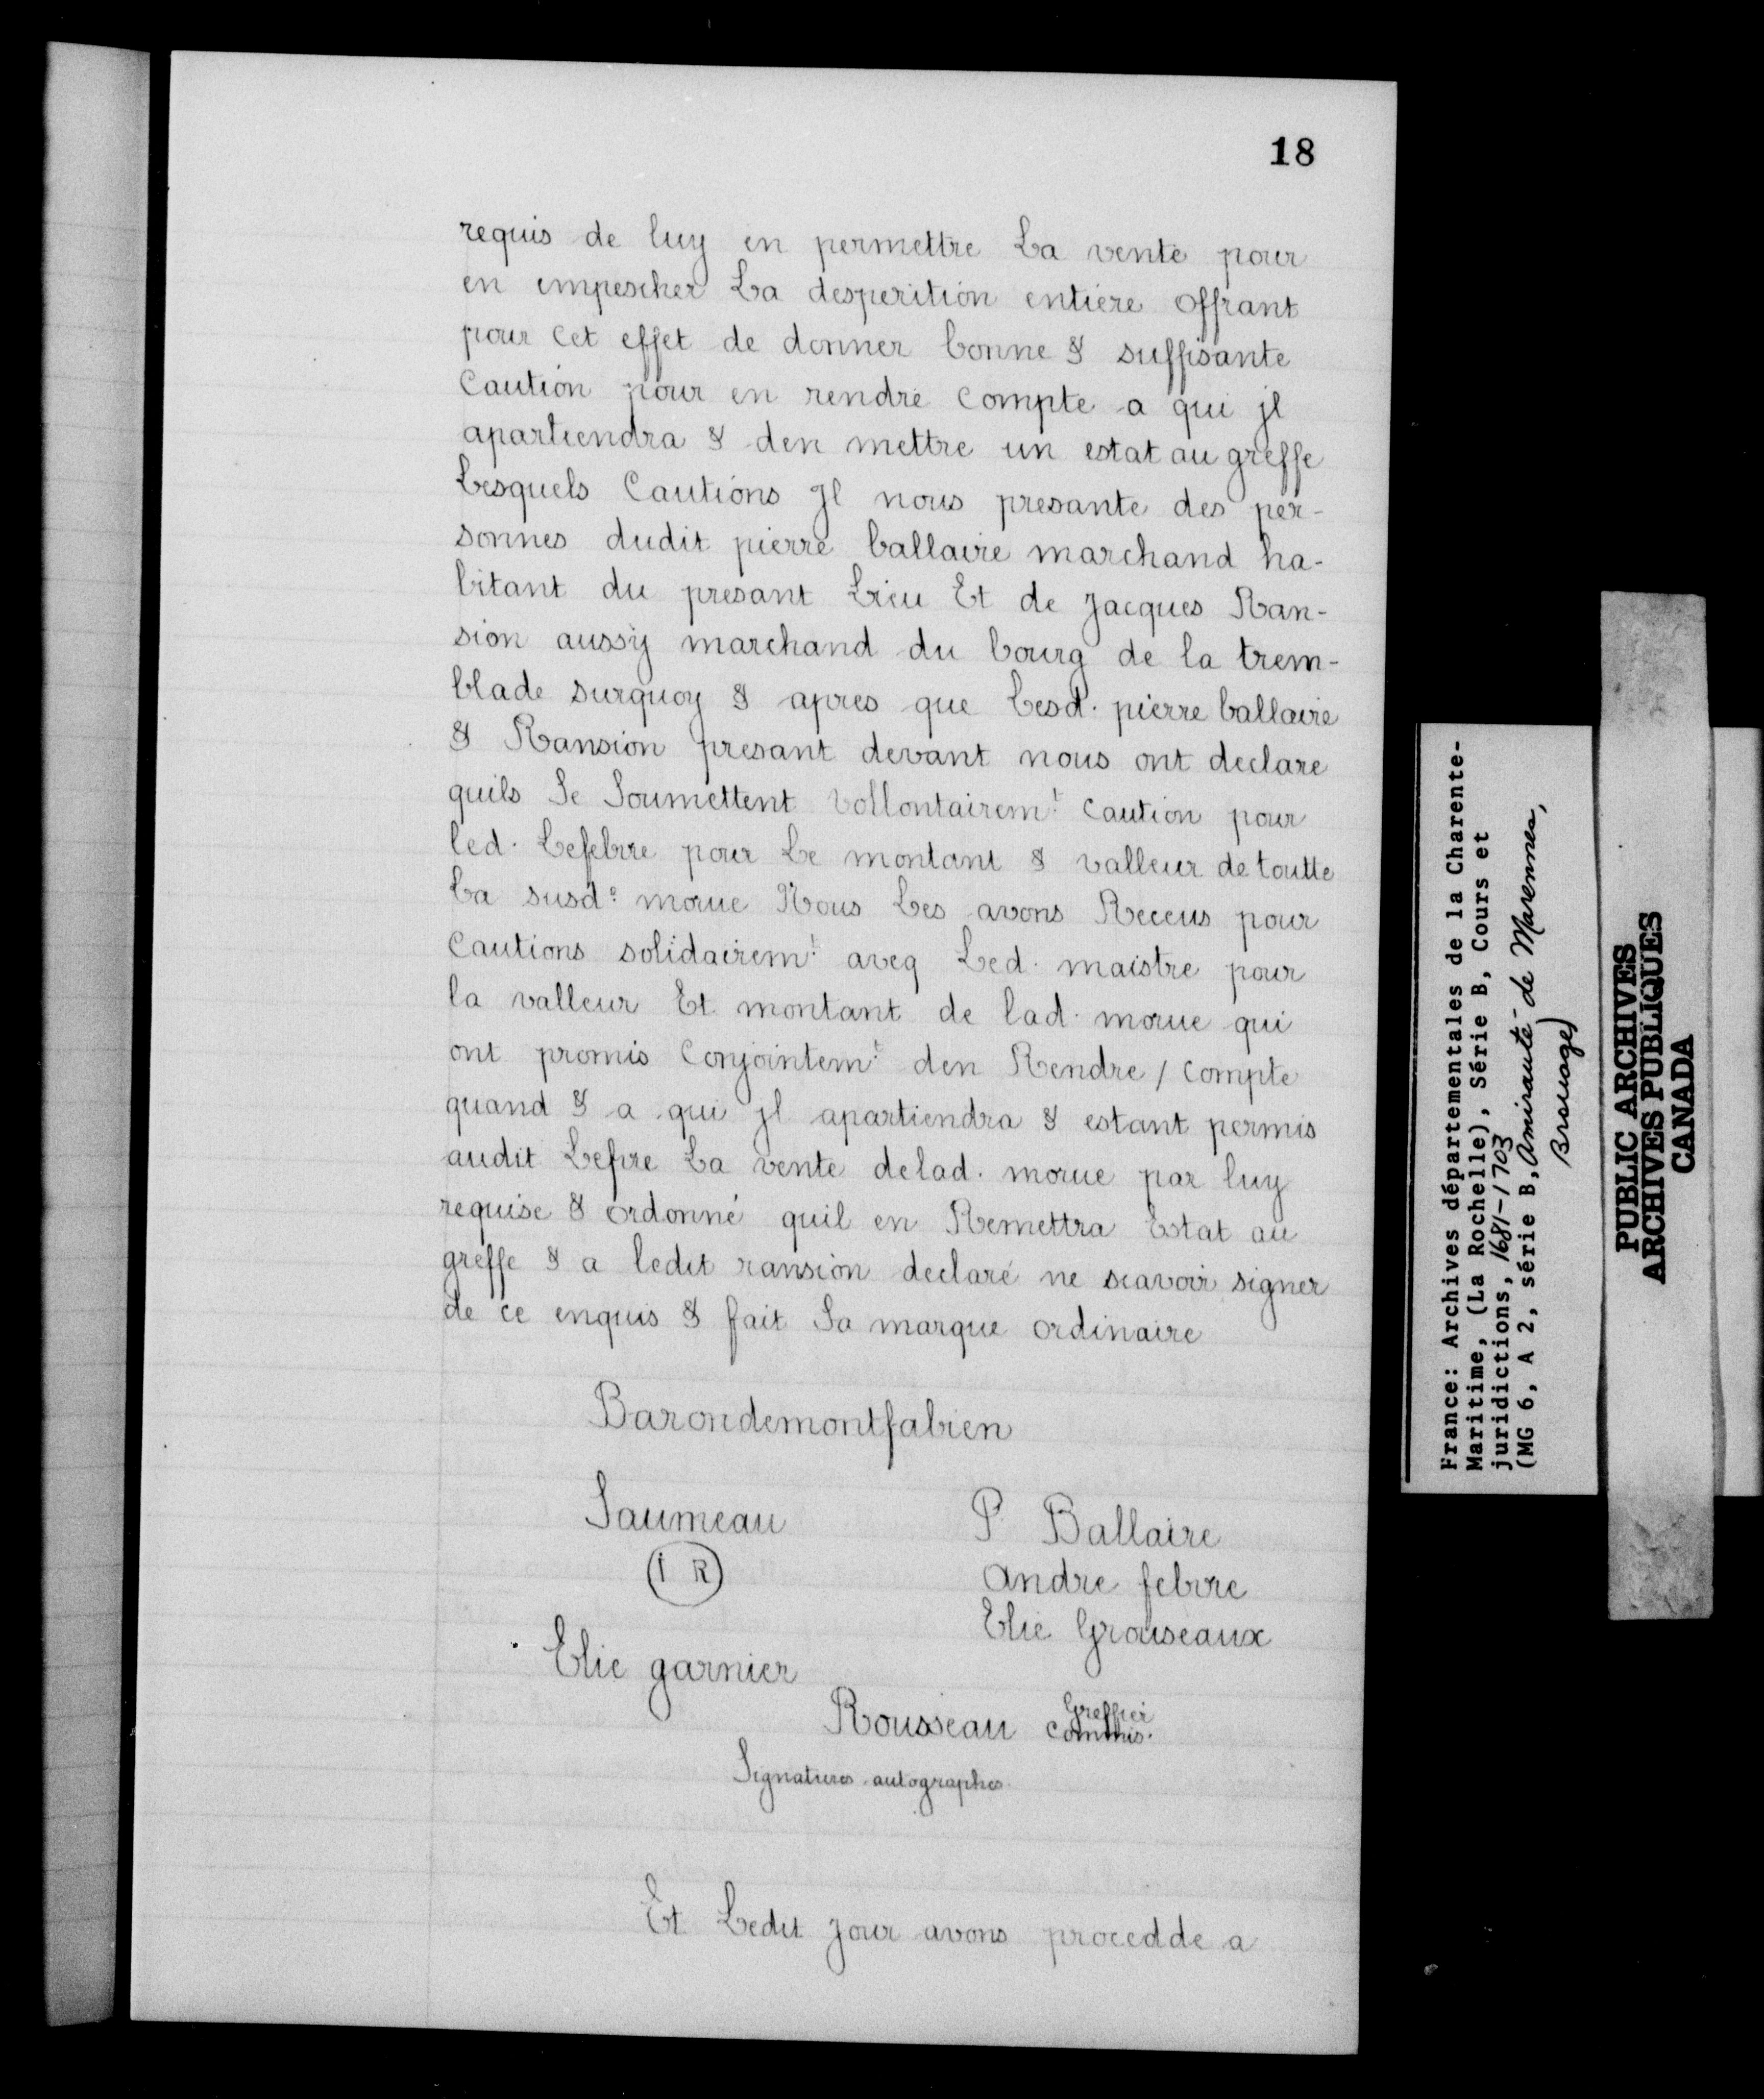 18
requis de luy en permettre La vente pour
en empescher La desperition entiere offrant
pour cet effet de donner bonne & suffisante
Caution pour en rendre compte a qui jl
apartiendra & den mettre un estat au greffe
Lesquels Cautions Jl nous presante des per-
sonnes dudit pierre ballaire marchand ha-
bitant du presant Lieu Et de Jacques Ran-
sion aussy marchand du bourg de la trem-
blade surquoy & apres que Lesd. pierre ballaire
& Ransion presant devant nous ont declare
quils Se Soumettent vollontairemt caution pour
led. Lefebre pour Le montant & valleur de toutte
La susde morue Nous Les avons Receus pour
Cautions solidairemt aveq Led. maistre pour
la valleur Et montant de lad. morue qui
ont promis Conjointemt den Rendre / compte
quand & a qui jl apartiendra & estant permis
audit Lefvre La vente delad. morue par luy
requise & ordonné quil en Remettra Estat au
greffe & a ledit ransion declaré ne scavoir signer
de ce enquis & fait Sa marque ordinaire
Barondemontfabien
Saumeau P Ballaire
I R andre febvre
Elie Grouseaux
Elie garnier
Rousseau Greffier commis.
Signatures autographes.
Et Ledit jour avons procedde a
France: Archives départementales de la Charente-
Maritime, (La Rochelle), Série B, Cours et
juridictions, 1681-1703
(MG 6, A 2, série B, Amirauté de Marennes,
Brouage)
PUBLIC ARCHIVES
ARCHIVES PUBLIQUES
CANADA